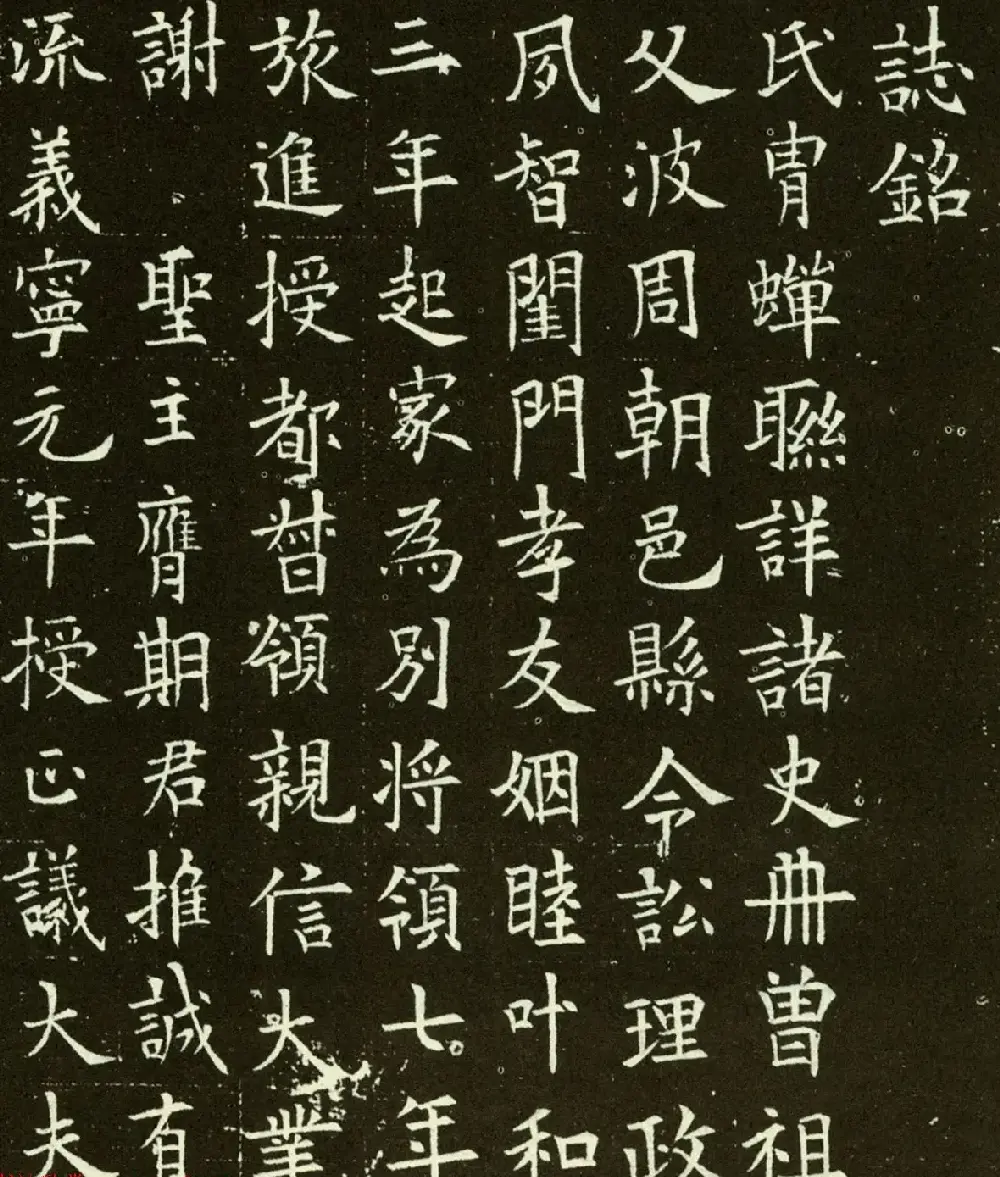 誌銘
氏胄蟬聮詳諸史冊曾祖
父波周朝邑縣令訟理政
夙智閨門孝友姻睦叶和
三年起家為別將領七年
旅進授都督領親信大業
謝聖主膺期君推誠有
流義寧元年授正議大夫